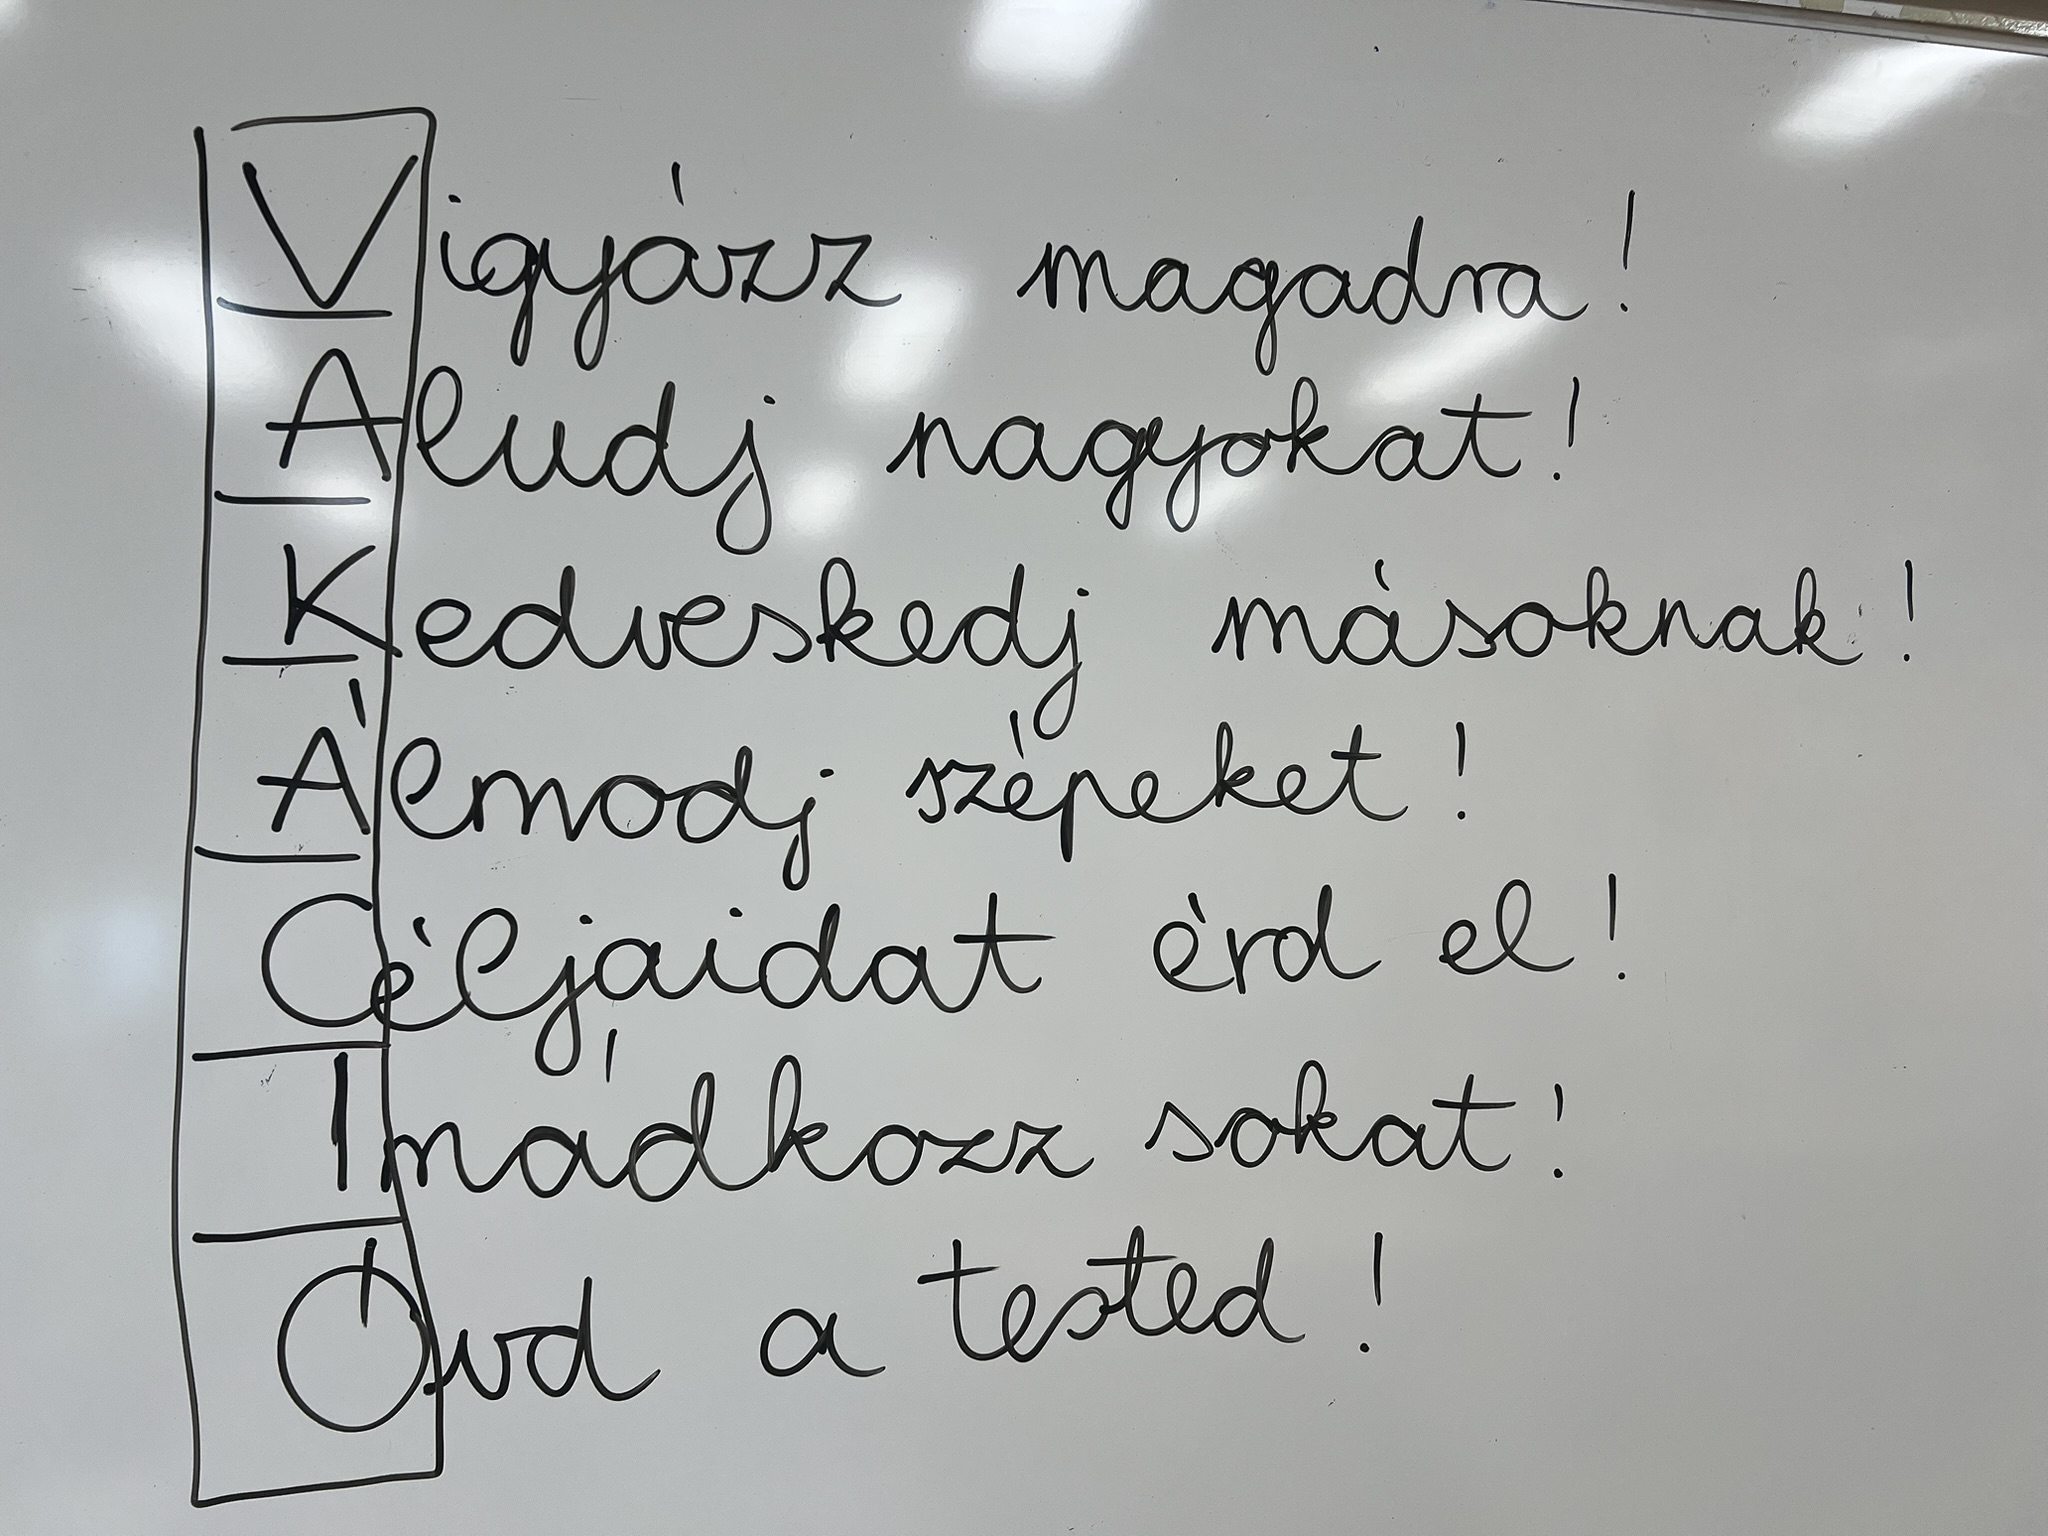 Vigyázz magadra!
Aludj nagyokat!
Kedveskedj másoknak!
Álmodj szépeket!
Céljaidat érd el!
Imádkozz sokat!
Óvd a tested!